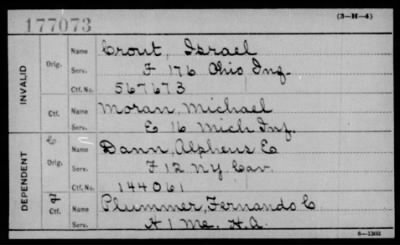 177073
(3-H-4)
INVALID
Orig.
Name Crout, Israel
Serv. F 176 Ohio Inf.
Ctf. No. 567673
Ctf.
Name Moran, Michael
Serv. E 16 Mich Inf.
DEPENDENT
C
Orig.
Name Dann, Alpheus E
Serv. F 12 NY Cav.
Ctf. No. 144061
Ctf.
Name Plummer, Fernando C
Serv. A 1 Me. H.A.
6-1302